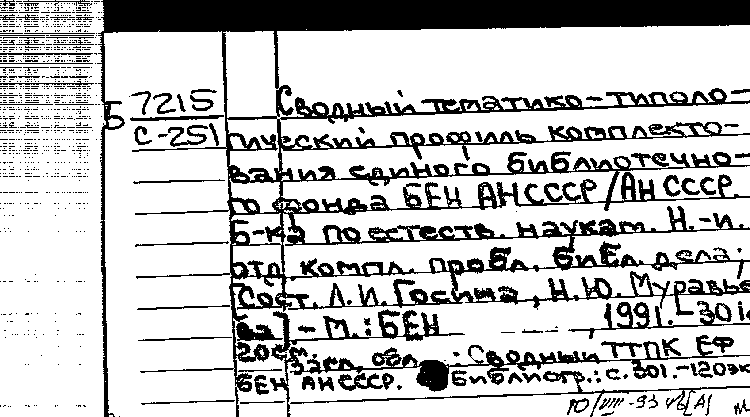 Б 7215 Сводный тематико-типоло-
С-251 гический профиль комплекто-
вания единого библиотечно-
го фонда БЕН АН СССР/АН СССР.
Б-ка по естеств. наукам. Н.-и.
отд. компл. пробл. библ. дела;
[Сост. Л.И. Госина, Н.Ю. Муравье
ва] - М.: БЕН , 1991. - 301с
20см.
Загл. обл.: Сводный ТТПК ЕФ
БЕН АН СССР. Библиогр.: с.301.-120эк
10/VIII-93